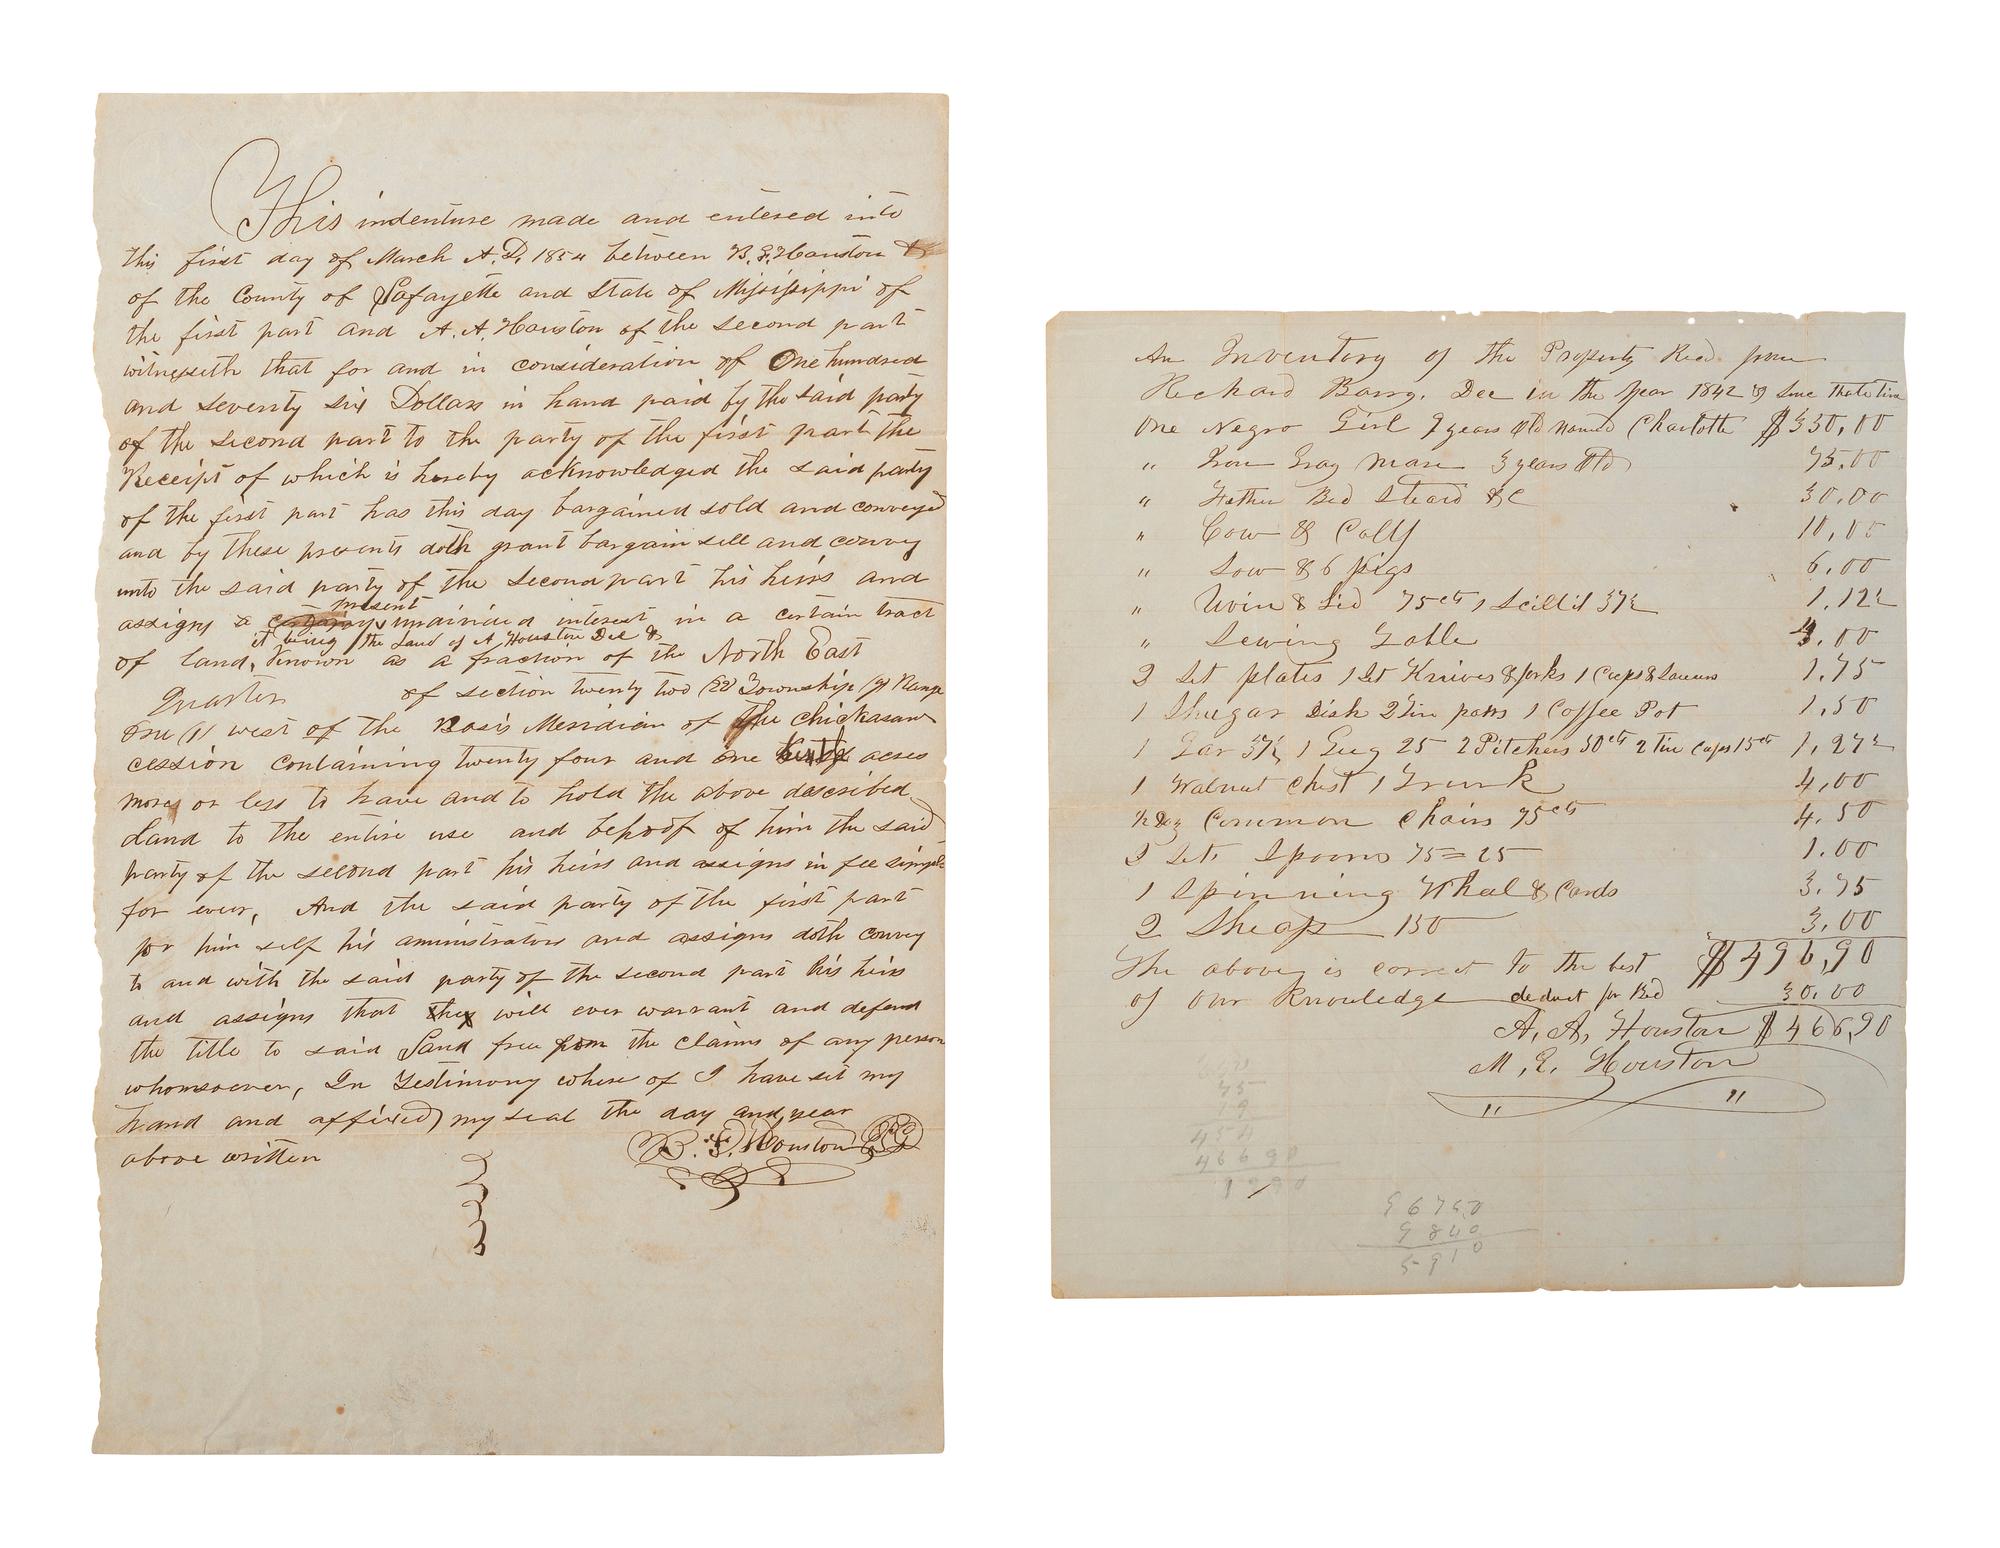 This indenture made and entered into
this first day of March A.D. 1854 between B. F. Houston &
of the County of Lafayette and State of Missisippi of
the first part and A. A. Houston of the second part
witnesseth that for and in consideration of One hundred
and seventy six Dollars in hand paid by the said party
of the second part to the party of the first part the
Receipt of which is hereby acknowledged the said party
of the first part has this day bargained sold and conveyed
and by these presents doth grant bargain sell and convey
unto the said party of the second part his heirs and
present
assigns a undivided interest in a certain tract
it being the Land of A Houston Dec &
of land, Known as a fraction of the North East
Quarter of section twenty two (22) Township (7) Range
One (1) west of the Basis Meridian of the chickasaw
cession containing twenty four and one tenth acres
more or less to have and to hold the above described
Land to the entire use and behoof of him the said
party of the second part his heirs and assigns in fee simple
for ever, And the said party of the first part
for him self his aministrators and assigns doth convey
to and with the said party of the second part his heirs
and assigns that they will ever warrant and defend
the title to said Land free from the claims of any person
whomsoever, In Testimony where of I have set my
hand and affixed my seal the day and year
above written B. F. Houston
An Inventory of the Property Recd from
Richard Barry, Dec in the year 1842 & since that time
One Negro Girl 9 years Old named Charlotte $330,00
" Iron Gray Mare 3 years Old 75.00
" Father Bed Steard &C 30,00
" Cow & Calf 10,00
" Sow & 6 pigs 6,00
" Oven & Lid 75cts 1 Scillit 37½ 1,12½
" Sewing Table 3.00
2 Set plates 1 St Knives & forks 1 Cups & Saucers 1.75
1 Shugar Dish 2 Tin pans 1 Coffee Pot 1,50
1 Jar 37½ 1 Gug 25 2 Pitchers 50cts 2 Tin Cups 15cts 1,27½
1 Walnut Chest 1 Trunk 4,00
½ Doz Common Chairs 75cts 4.50
2 Sets Spoons 75=25 1.00
1 Spinning Wheel & Cards 3.75
2 Sheap 150 3,00
The above is correct to the best $496,90
of our Knowledge deduct for Bed 30.00
A. A. Houston $466,90
M. E. Houston
" "
75
19
454
46690
96750
9840
5910